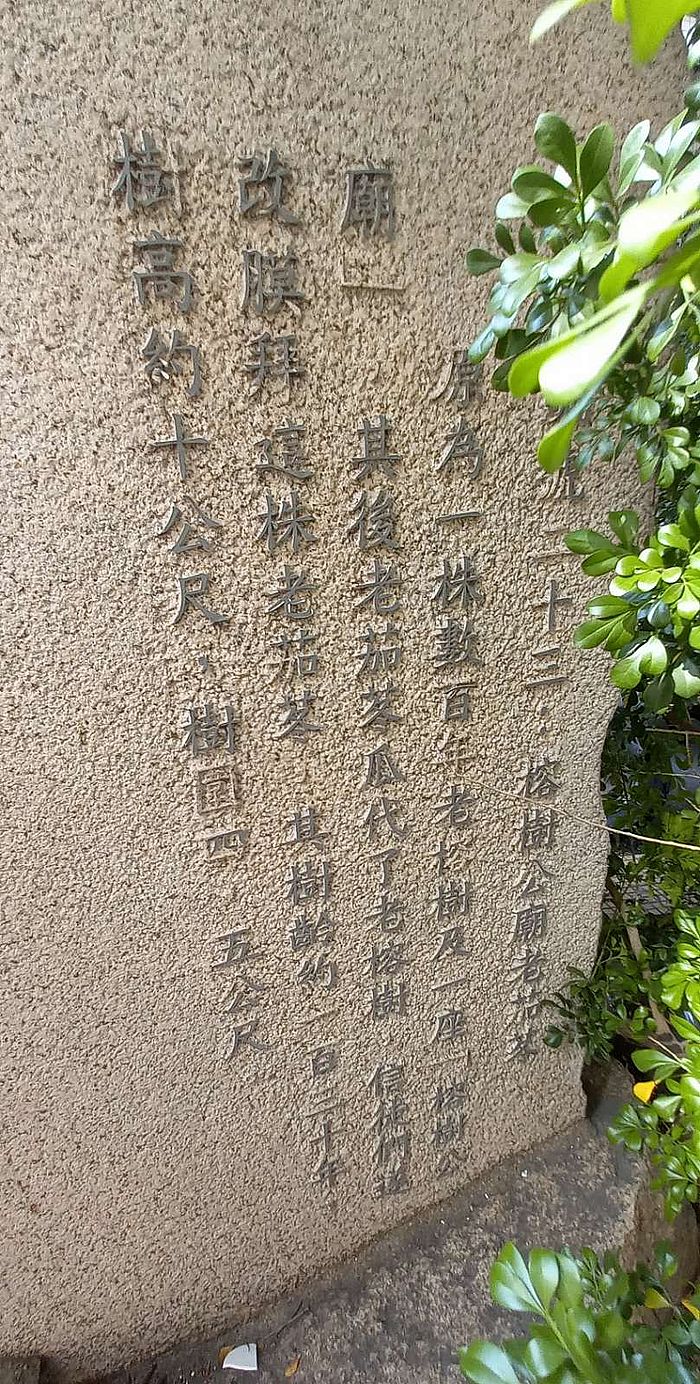 號二十三:榕樹公廟老茄苳
原為一株數百年老榕樹及一座「榕樹公
廟」,其後老茄苳取代了老榕樹,信徒們遂
改膜拜這株老茄苳,其樹齡約一百二十年,
樹高約十公尺,樹圍四.五公尺